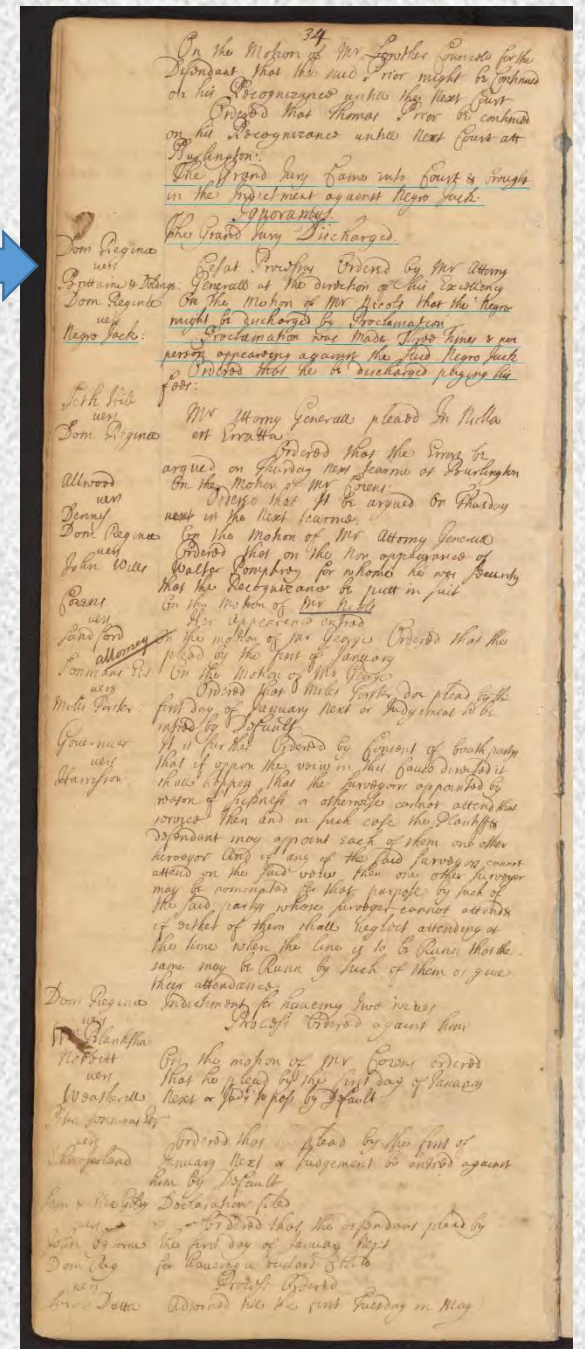 34
On the Motion of Mr Lowther Councele for the
Defendant that the said Prior might be Continued
on his Recognizance untill the Next Court
Ordered that Thomas Prior be continued
on his Recognizance untill Next Court att
Burlington:
The Grand Jury Came into Court & brought
in the Indictment against Negro Jack.
Ignoramus
The Grand Jury Discharged.
Dom Regina
vers Cesat Prosessus Ordered by Mr Attorny
Generall at the direction of his Excellency
Dom Regina On the Motion of Mr that the Negro
vers might be discharged by Proclamation
Negro Jack: Proclamation was Made Three Times & no
person appearing against the said Negro Jack
Ordered that he be discharged paying his
fees:
Seth Hill Mr Attorny Generall plead In Nulla
vers est Erratta
Dom Regina Ordered that the Errors be
argued on Thursday Next Tearme at Burlington
Allwood On the Motion of Mr Corens
vers Ordered that It be argued On Thursday
Denny next in the Next Tearme.
Dom Regina On the Motion of Mr Attorny Generall
vers Ordered that on the Non appearance of
John Wills Walter Pomphrey for whome he was Security
that the Recognizance be putt in suit
Corens On the Motion of Mr
vers Her Appearance entred
Sandford On the motion of Mr George Ordered that they
attorney plead by the first of January
Sonmans On the Motion of Mr George
vers Ordered that Miles Forster doe plead by the
Miles Forster: first day of January Next or Judgement to be
entred by Default
Governier It is further Ordered by Consent of both party
vers that if uppon the veiw in this Cause directed it
Harrison shall happen that the Surveyors appointed by
reason of sickness or otherwise cannot attend that
service Then and in such case the Plantiff &
defendant may appoint each of them one other
surveyor And if any of the said surveyors cannot
attend on the said veiw then one other surveyor
may be nominated for that purpose by such of
the said partys whose surveyor cannot attend &
if either of them shall neglect attending at
the time when the line is to be Runn that the
same may be Runn by such of them as give
their attendance
Dom Regina Indictment for haveing two wives
vers Process Ordered against him
Norbitt On the motion of Mr Corens ordered
vers that he plead by the first day of January
Weatherill Next or Judgmt to pass by Default
vers Ordered that plead by the first of
January Next or Judgement be entred against
him by Default
Declaration filed
vers Ordered that the defendant plead by
the first day of January Next
Dom Reg for haveing a bastard Child
vers Process Ordered
Adjorned till the first Tuesday in May